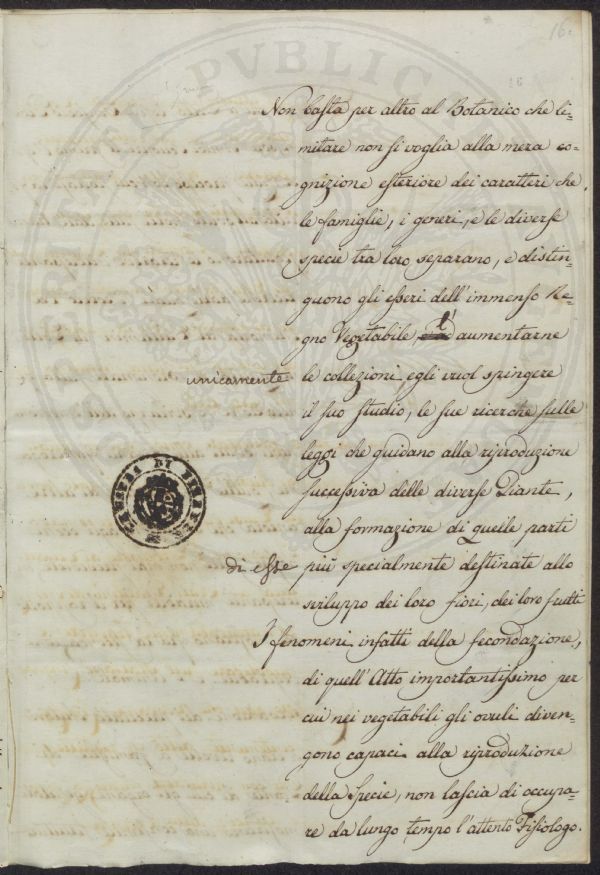 16.
Non basta per altro al Botanico che li=
mitare non si voglia alla mera co=
gnizione esteriore dei caratteri che
le famiglie, i generi, e le diverse
specie tra loro separano, e distin=
guono gli esseri dell'immenso Re=
gno Vegetabile, l' aumentarne
unicamente le collezioni, egli vuol spingere
il suo studio, le sue ricerche sulle
leggi che guidano alla riproduzione
successiva delle diverse Piante,
alla formazione di quelle parti
di esse più specialmente destinate allo
sviluppo dei loro fiori, dei loro frutti
I fenomeni infatti della fecondazione,
di quell'Atto importantissimo per
cui nei vegetabili gli ovuli diven=
gono capaci alla riproduzione
della Specie, non lascia di occupa=
re da lungo tempo l'attento Fisiologo.